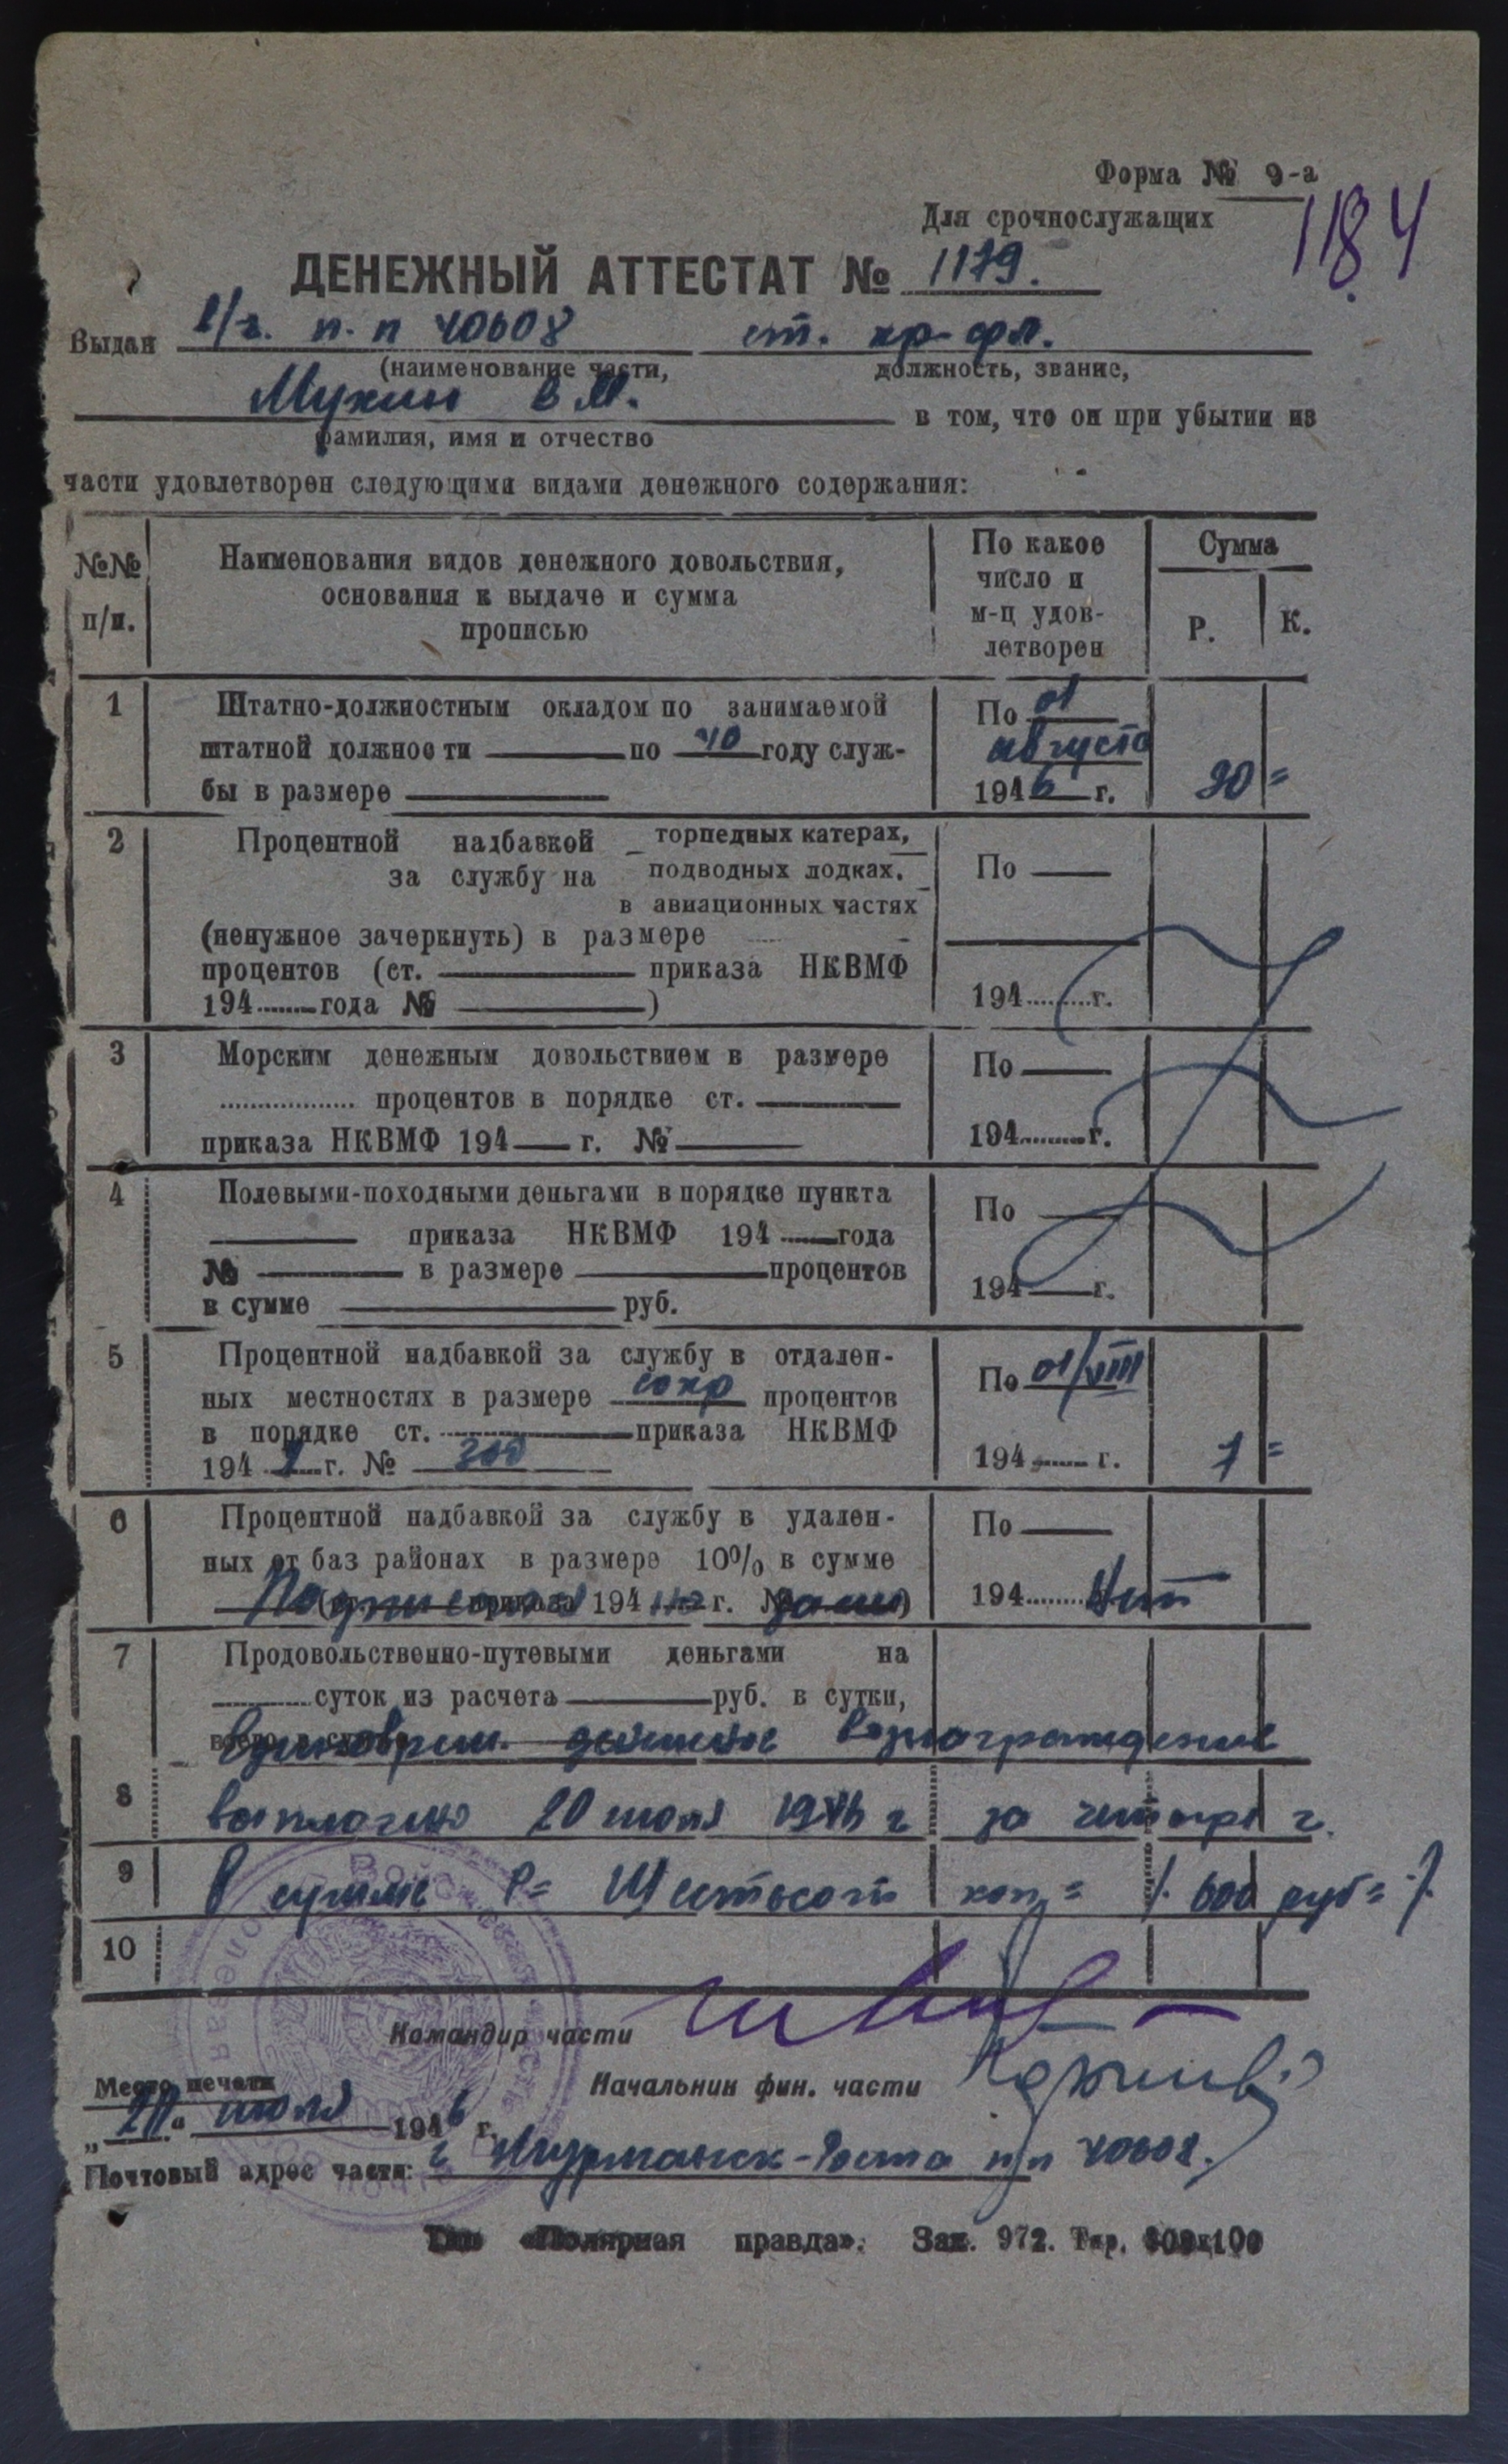 Форма № 9-а
Для срочнослужащих
1184
ДЕНЕЖНЫЙ АТТЕСТАТ № 1179.
Выдан в/ч. п.п 40608 ст. кр-фл.
(наименование части, должность, звание,
Мухин В М. в том, что он при убытии из
фамилия, имя и отчество
части удовлетворен следующими видами денежного содержания:
№№ п/п.
Наименования видов денежного довольствия,
основания к выдаче и сумма
прописью
По какое
число и
м-ц удов-
летворен
Сумма
Р. К.
1 Штатно-должностным окладом по занимаемой
штатной должности по 40 году служ-
бы в размере
По 01
августа
1946 г. 90=
2 Процентной надбавкой торпедных катерах,
за службу на подводных лодках.
в авиационных частях
(ненужное зачеркнуть) в размере
процентов (ст. приказа НКВМФ
194 года № )
По
194 г.
3 Морским денежным довольствием в размере
процентов в порядке ст.
приказа НКВМФ 194 г. №
По
194 г.
4 Полевыми-походными деньгами в порядке пункта
приказа НКВМФ 194 года
№ в размере процентов
в сумме руб.
По
194 г.
5 Процентной надбавкой за службу в отдален-
ных местностях в размере процентов
в порядке ст. приказа НКВМФ
194 г. №
По 01/VIII
194 г. 7=
6 Процентной надбавкой за службу в удален-
ных от баз районах в размере 10% в сумме
(ст. приказа 194 г. № )
По
194 г.
Подписался на заем Нет
7 Продовольственно-путевыми деньгами на
суток из расчета руб. в сутки,
всего в сумме
Единоврем. денежное вознаграждение
8 выплачено 20 июля 1946 г за четыре г.
9 В сумме Р= Шестьсот коп= /. 600 руб= ./.
10
Командир части
Место печати
Начальник фин. части
„20“ июля 1946 г.
Почтовый адрес части: г Мурманск-Роста п/п 40608.
Тип «Полярная правда». Зак. 972. Тир.